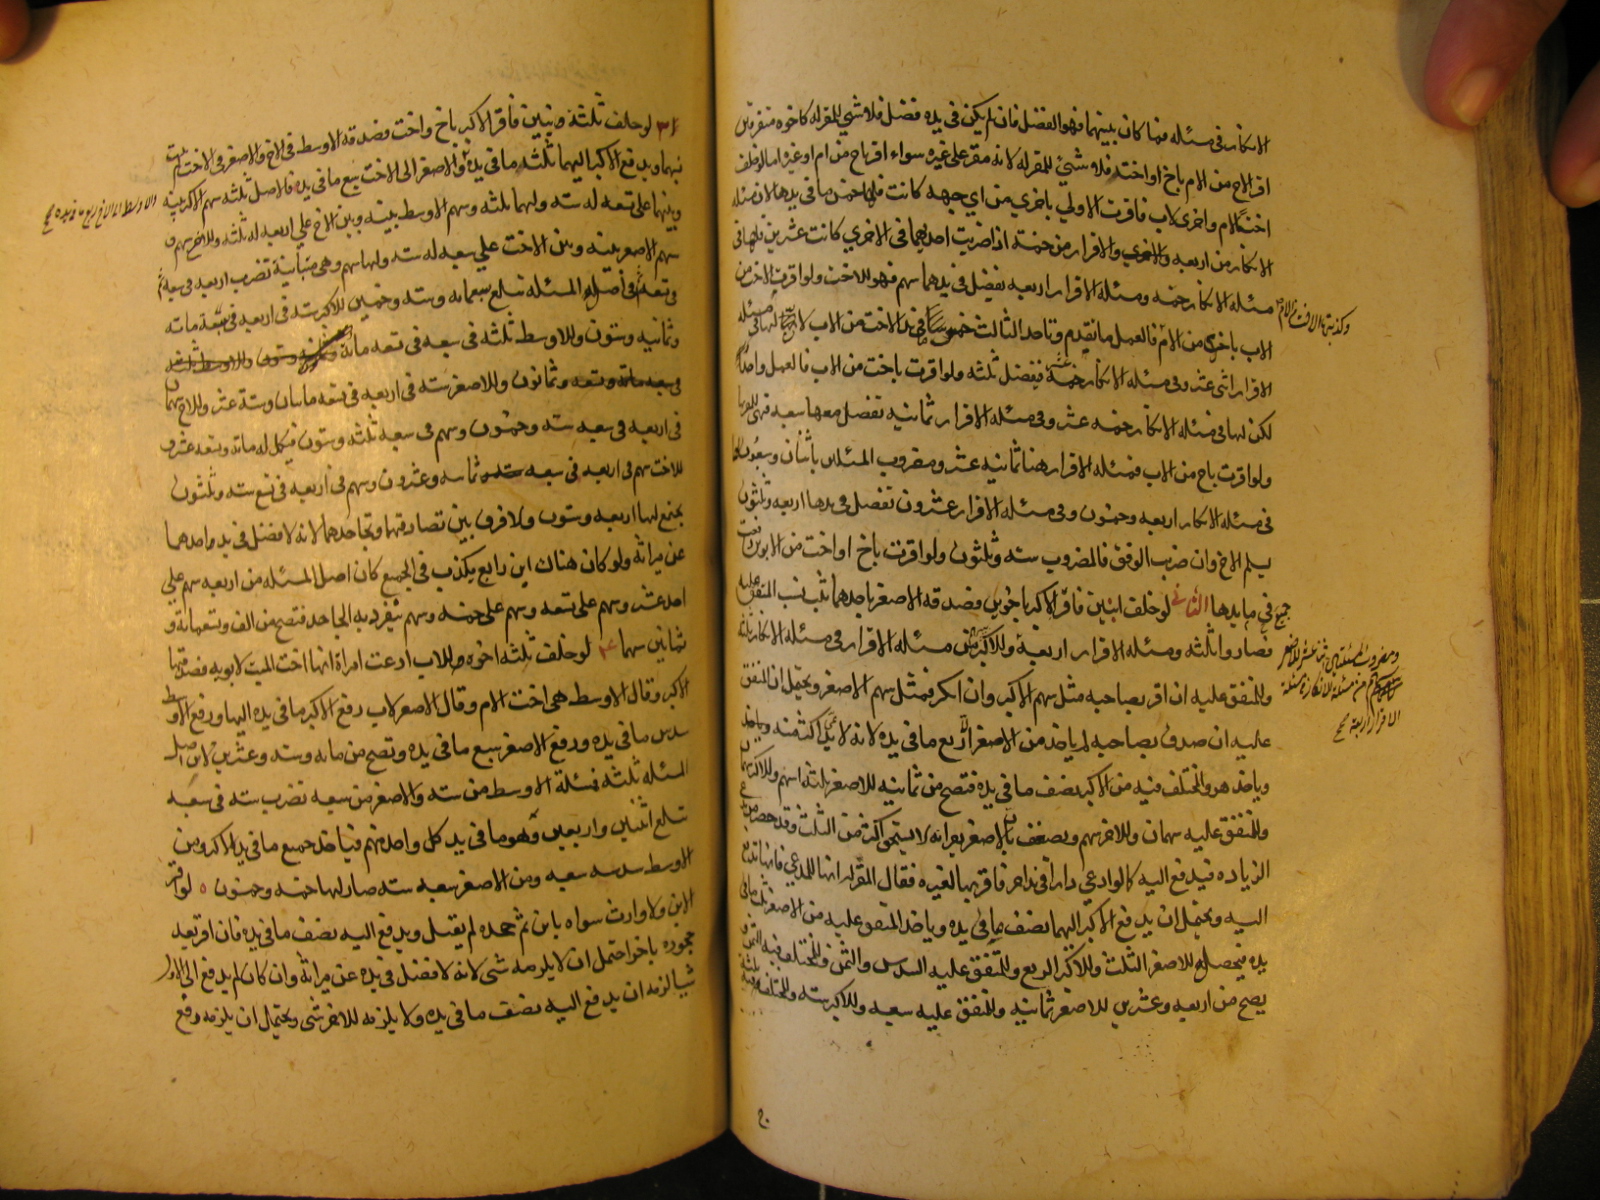 الانكار في مسئله فما كان بينهما فهو الفضل فان لم يكن في يده فضل فلا شي للمقر له كاخوه متفرقين
اقر الاخ من الام باخ او اخت فلا شيئ للمقر له لانه مقر على غيره سواء اقر باخ من ام او غيره اما لو خلف
اختا لام واخرى لاب فاقرت الاولي باخري من اي جهه كانت فلها خمس ما في يدها لان مسئله
الانكار من اربعه والاقرار من خمسة اذا ضربت احديهما في الاخري كانت عشرين فلها في
مسئله الانكار خمسه ومسئله الاقرار اربعه يفضل في يدها سهم فهو للاخت ولو اقرت الاخت من
الاب باخرى من الام فالعمل ما تقدم وتاخذ الثالث خمس ما في يد الاخت من الاب لان لها في مسئله
الاقرار اثنى عشر وفي مسئله الانكار خمسة عشر يفضل ثلثه ولو اقرت باخت من الاب فالعمل واحد
لكن لها في مسئله الانكار خمسه عشر وفي مسئله الاقرار ثمانيه تفضل معها سبعه فهي للمقر بها
ولو اقرت باخ من الاب فمسئله الاقرار هنا ثمانيه عشر ومضروب المسئلتين باثنان وسبعون لها
في مسئله الانكار اربعه وخمسون وفي مسئله الاقرار عشرون تفضل في يدها اربعه وثلثون
يسلم الاخ وان ضرب الوفق فالمضروب سته وثلثون ولو اقرت باخ او اخت من الابوين دفعت
جميع ما في يدها الثاني لو خلف ابنين فاقر الاكبر باخوين فصدقه الاصغر باحدهما ثبت نسب المتفق عليه
فصاروا ثلثه ومسئله الاقرار اربعة وللاكبر من مسئله الاقرار في مسئله الانكار ثلثة
وللمتفق عليه ان اقر بصاحبه مثل سهم الاكبر وان انكر فمثل سهم الاصغر ويحتمل ان المتفق
عليه ان صدق بصاحبه لم ياخذ من الاصغر الا ربع ما في يده لانه لا يدعي اكثر منه وياخذ
وياخذ هو والمختلف فيه من الاكبر نصف ما في يده فتصح من ثمانيه للاصغر ثلثة اسهم وللاكبر سهمان
وللمتفق عليه سهمان وللاخر سهم ويضعف بان الاصغر يقر انه لا يستحق اكثر من الثلث وقد حضر من
الزياده فيدفع اليه كما لو ادعي دارا في يد اخر فاقر بها لغيره فقال المقر له انها للمدعي فانها تدفع
اليه ويحتمل ان يدفع الاكبر اليهما نصف ما في يده وياخذ المتفق عليه من الاصغر ثلث ما في
يده فيحصل للاصغر الثلث وللاكبر الربع وللمتفق عليه السدس والثمن وللمختلف فيه الثمن
يصح من اربعه وعشرين للاصغر ثمانيه وللمتفق عليه سبعه وللاكبر سته وللمختلف فيه ثلثة
وكذا
ومضروب المسئلتين اثنا عشر للاصغر
سهم من مسئلة الانكار في مسئلة
الاقرار اربعة صح
٣ لو خلف ثلثة بنين فاقر الاكبر باخ واخت فصدقه الاوسط في الاخ والاصغر في الاخت لم يثبت
نسبهما ويدفع الاكبر اليهما ثلث ما في يده والاصغر الى الاخت سبع ما في يده فالاصل ثلثه سهم الاكبر بينه
وبينهما على تسعه له سته ولهما ثلثه وسهم الاوسط بينه وبين الاخ علي اربعه له ثلثه وللاخ سهم و
سهم الاصغر بينه وبين الاخت علي سبعه له سته ولها سهم وهي متباينة تضرب اربعه في سبعه ثم
في تسعه ثم في اصل المسئله تبلغ سبعمائه وسته وخمسين للاكبر سته في اربعه في سبعة مائه
وثمانيه وستون وللاوسط ثلثه في سبعه في تسعه مائة
وتسعه وثمانون وللاصغر سته في اربعه في تسعه مايتان وستة عشر وللاخ سهمان
في اربعه في سبعه سته وخمسون وسهم في سبعه ثلثه وستون فيكمل له مائه وتسعه عشر و
للاخت سهم في اربعه في سبعه ثمانيه وعشرون وسهم في اربعه في تسع سته وثلثون
يجتمع لها اربعه وستون ولا فرق بين تصادقهما وتجاحدهما لانه لا فضل في يد واحدهما
عن ميراثه ولو كان هناك ابن رابع يكذب في الجميع كان اصل المسئله من اربعه سهم علي
احد عشر وسهم على تسعه وسهم على خمسه وسهم ينفرد به الجاحد فتصح من الف وتسعمائة و
ثمانين سهما ٤ لو خلف ثلثه اخوه للاب ادعت امراة انها اخت الميت لابويه فصدقها
الاكبر وقال الاوسط هي اخت الام وقال الاصغر لاب دفع الاكبر ما في يده اليها ودفع الاوسط
سدس ما في يده ودفع الاصغر سبع ما في يده وتصح من مائه وسته وعشرين لان اصل
المسئله ثلثه فمسئلة الاوسط من سته والاصغر من سبعه تضرب سته في سبعه
تبلغ اثنين واربعين فهو ما في يد كل واحد منهم فياخذ جميع ما في يد الاكبر ومن
الاوسط سدسه سبعه ومن الاصغر سبعه سته صار لها خمسه وخمسون ٥ لو اقر
الابن ولا وارث سواه بابن ثم جحده لم يقبل ويدفع اليه نصف ما في يده فان اقر بعد
جحوده باخر احتمل ان لا يلزمه شي لانه لا فضل في يده عن ميراثه وان كان لم يدفع الى الاول
شيا لزمه ان يدفع اليه نصف ما في يده ولا يلزمه للاخر شي ويحتمل ان يلزمه دفع